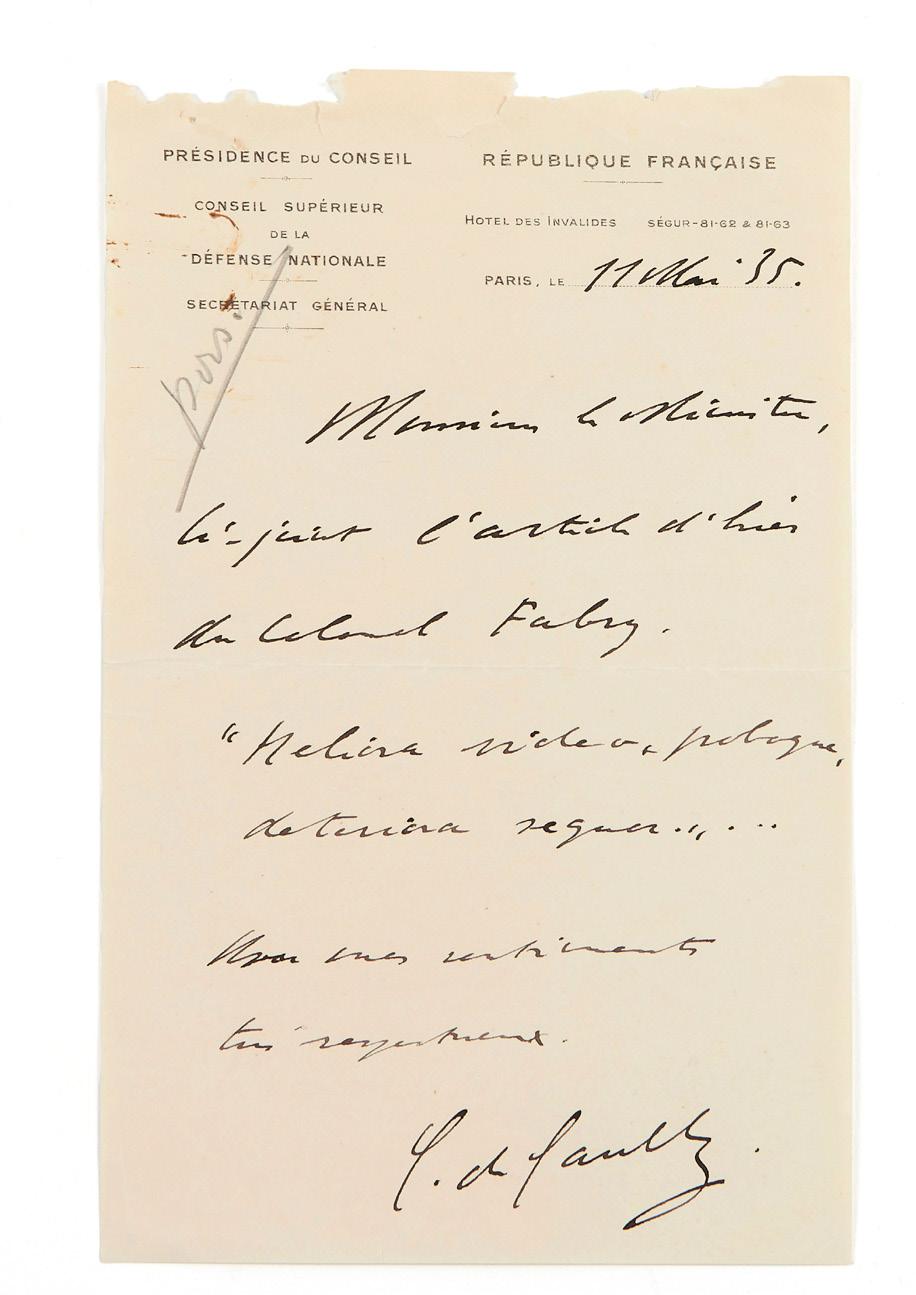 PRÉSIDENCE DU CONSEIL
CONSEIL SUPÉRIEUR
DE LA
DÉFENSE NATIONALE
SECRÉTARIAT GÉNÉRAL
RÉPUBLIQUE FRANÇAISE
HOTEL DES INVALIDES SÉGUR-81-62 & 81-63
PARIS, LE 11 Mai 35.
pers.
Monsieur le Ministre,
Ci-joint l'article d'hier
du Colonel Fabry.
"Meliora video, proboque,
deteriora sequor"...
Avec mes sentiments
très respectueux.
C. de Gaulle.